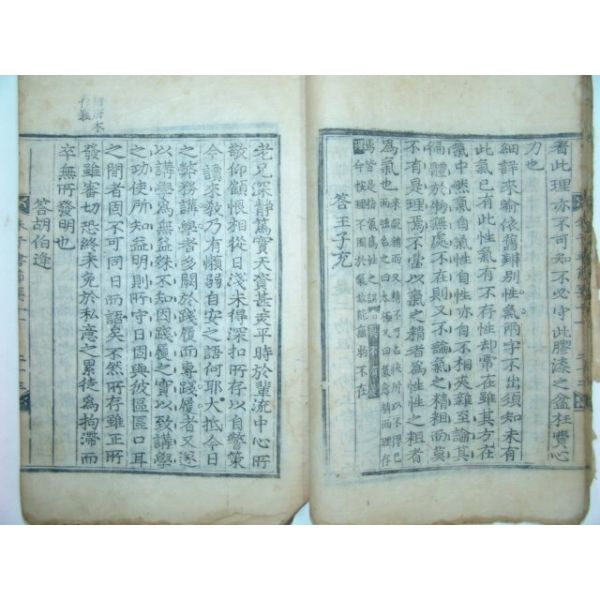 者此理亦不可知不必守此膠漆之盆枉費心
刀也
細詳來喻依舊辨別性氣兩字不出須知未有
此氣已有此性氣有不存性却常在雖其方在
氣中然氣自氣性自性亦自不相夾雜至論其
徧體於物無處不在則又不論氣之精粗而莫
不有是理焉不當以氣之精者爲性性之粗者
爲氣也
答王子充
老兄深靜篤實天資甚美平時於輩流中心所
敬仰顧恨相從日淺未得深扣所存以自警策
今讀來敎乃有懶弱自安之語何耶大抵今日
之弊務講學者多闕於踐履而專踐履者又遂
以講學爲無益殊不知因踐履之實以致講學
之功使所知益明則所守日固與彼區區口耳
之間者固不可同日而語矣不然所存雖正所
發雖審切恐終未免於私意之累徒爲拘滯而
卒無所發明也
答胡伯逢